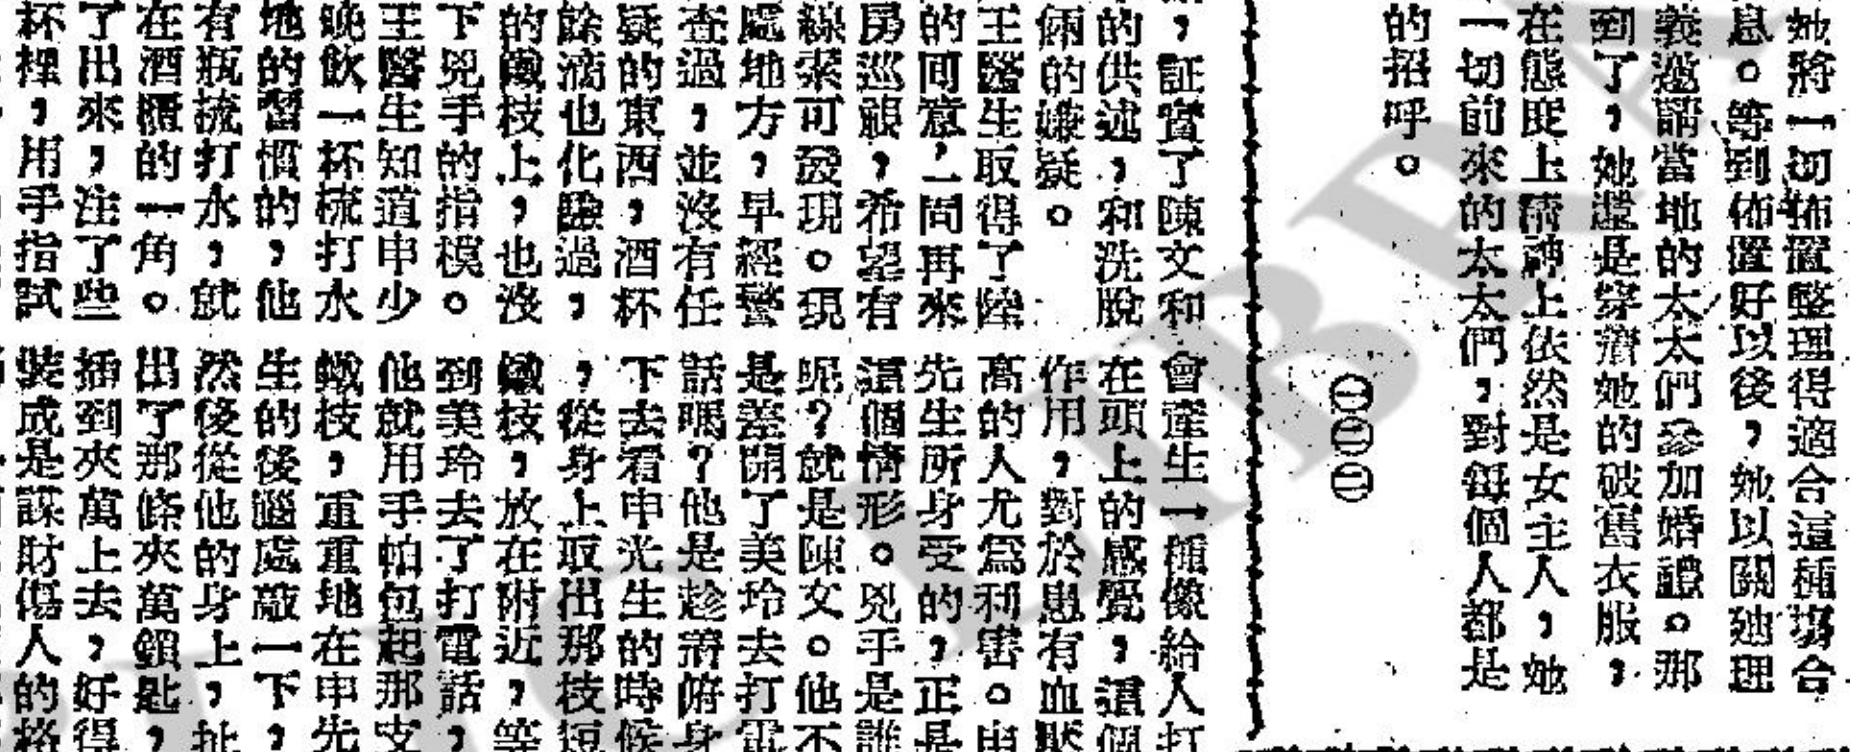 她將一切佈置整理得適合這種場合
息。等到佈置好以後,她以
義邀請當地的太太們參加婚禮。那
到了,她還是穿着她的破舊衣服,
在態度上精神上依然是女主人,她
一切前來的太太們,對每個人都是
的招呼。
,証實了陳文和
的供述,和洗脫
倆的嫌疑。
王醫生取得了陸
的同意,一同再來
房巡視,希望有
線索可發現。現
處地方,早經警
查過,並沒有任
疑的東西,酒杯
餘滴也化驗過,
的鐵枝上,也沒
下兇手的指模。
王醫生知道申少
晚飲一杯梳打水
地的習慣的,他
有瓶梳打水,就
在酒櫃的一角。
了出來,注了些
杯裡,用手指試
會產生一種像給人打
在頭上的感覺,這個
作用,對於患有血壓
高的人尤爲利害。申
先生所身受的,正是
這個情形。兇手是誰
呢?就是陳文。他不
是差開了美玲去打電
話嗎?他是趁着俯身
下去看申光生的時候
,從身上取出那枝短
鐵枝,放在附近,等
到美玲去了打電話,
他就用手帕包起那支
鐵枝,重重地在申先
生的後腦處敲一下,
然後從他的身上,扯
出了那條夾萬鎖匙,
插到夾萬上去,好得
裝成是謀財傷人的格